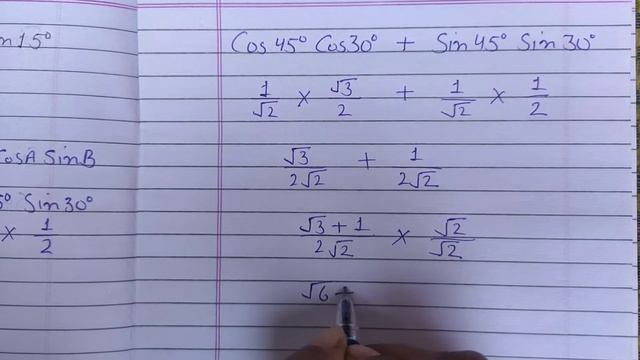 n15°
CosA SinB
5° Sin30°
× 1/2
Cos45° Cos30° + Sin45° Sin30°
1/√2 × √3/2 + 1/√2 × 1/2
√3/2√2 + 1/2√2
√3 + 1/2√2 × √2/√2
√6 +